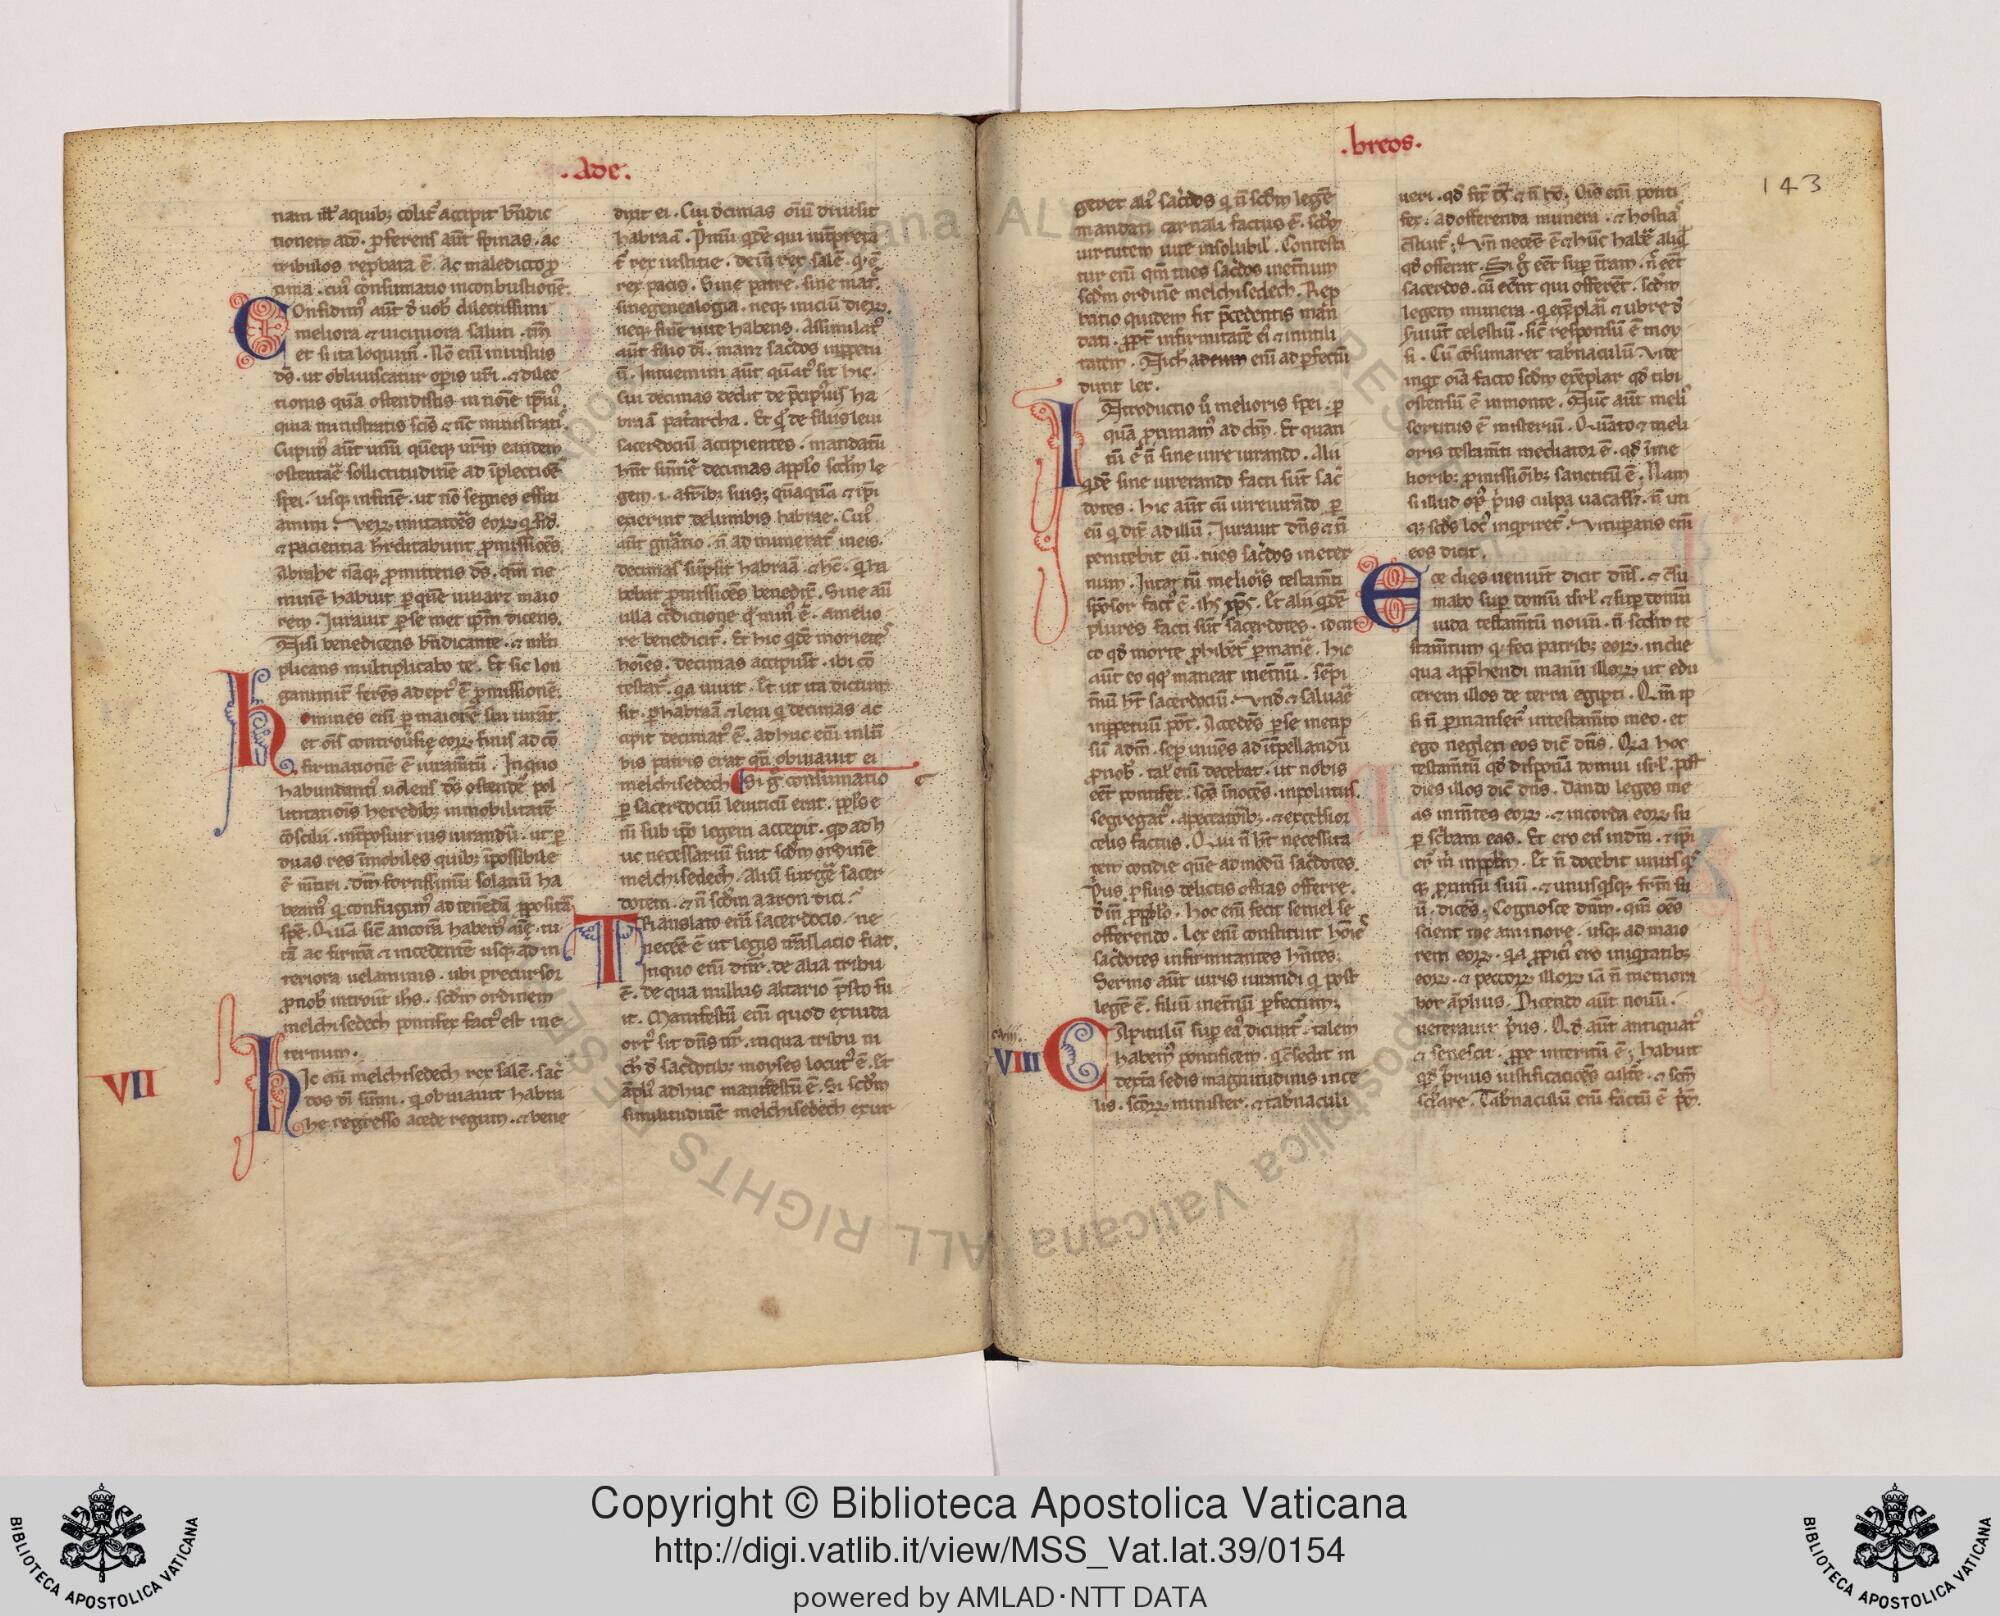 .ade.
nam illi a quibus colitur accipit bndic
tionem a do. proferens aut spinas. ac
tribulos reproba e. ac maledicto pro
xima. cuius consumatio in conbustionem.
Confidimus aut de uob dilectissimi
meliora et uiciniora saluti. tam
et si ita loquimur. Non enim iniustus
ds. ut obliuiscatur operis uri. et dilec
tionis qua ostendistis in noie ipsius.
quia ministrastis scis et nc ministratis.
Cupimus aut unu queq urm eandem
ostentare sollicitudine ad ipletione
spei. usq in fine. ut no segnes effici
amini. Veru imitatores eoru q fide.
et pacientia hereditabunt promissiones.
Abrahe naq promittens ds. qm ne
mine habuit per que iuraret maio
rem. Iurauit per se met ipm dicens.
Nisi benedicens bndicam te. et mlti
plicans multiplicabo te. Et sic lon
ganimiter ferens adeptus e promissione.
homines eni per maiore sui iurant.
et ois controuersie eoru finis ad con
firmatione e iuramtu. In quo
habundanti uolens ds ostendere pol
licitationis heredibz inmobilitate
consilii. interposuit ius iurandu. ut per
duas res inmobiles quibz inpossibile
e mentiri dm. fortissimu solaciu ha
beamus qui confugimus ad tenenda proposita
spe. Qua sic ancora habemus aie. tu
ta ac firma et incedente usq ad in
teriora uelaminis. ubi precursor
pro nob introiit ihs. scdm ordinem
melchisedech pontifex factus est in e
ternum.
VII
Hic enim melchisedech rex salem. sacer
dos di sumi. qui obuiauit habra
he regresso a cede regum. et bene
dixit ei. Cui decimas oium diuisit
habraa. Primu qde qui interpreta
tur rex iusticie. dein rex sale. q e
rex pacis. Sine patre. sine matre.
sine genealogia. neq iniciu dieru.
neq fine uite habens. Assimilatus
aut filio di. manet sacerdos in perpetu
u. Intuemini aut quatus sit hic.
cui decimas dedit de precipuis ha
braa patriarcha. Et qde de filiis leui
sacerdociu accipientes. mandatu
hnt sumere decimas a pplo scdm le
gem. i. a fratribz suis; quaqua et ipsi
exierint de lumbis habrae. Cuius
aut generatio. n adnumeratur in eis.
decimas supsit habraa. et hc. qui ha
bebat promissiones benedixit. Sine aut
ulla contradictione qd minus e. a melio
re benedicitur. Et hic qde morientes
hoies. decimas accipiunt. ibi con
testatur. qa uiuit. Et ut ita dictum
sit. per habraa et leui qui decimas ac
cipit decimatus e. Adhuc eni in lum
bis patris erat qn obuiauit ei
melchisedech Si g consumatio
per sacerdociu leuiticu erat. ppls e
ni sub ipo legem accepit. qd adh
uc necessariu fuit scdm ordine
melchisedech. aliu surgere sacer
dotem. et n scdm aaron dici.
Translato eni sacerdocio. ne
necesse e ut legis translacio fiat.
In quo eni dicuntur. de alia tribu
e. de qua nullus altario presto fu
it. Manifestu eni quod ex iuda
ortus sit dns nr. in qua tribu ni
chil de sacerdotibz moyses locutus e. Et
amplius adhuc manifestu e. Si scdm
similitudine melchisedech exur
.breos.
143
geret alius sacerdos qui n scdm lege
mandati carnalis factus e. scdm
uirtutem uite insolubilis. Contesta
tur eni qm tu es sacerdos in eternum
scdm ordine melchisedech. Rep
batio quidem fit precedentis man
dati. propter infirmitate eius et inutili
tatem. Nichil eni ad perfectu
duxit lex.
Introductio u melioris spei. per
qua proximamus ad dm. Et quan
tu e n sine iure iurando. Alii
qde sine iureiurando facti sunt sacer
dotes. hic aut cu iureiurando per
eu qui dixit ad illu. Iurauit dns et n
penitebit eu. tu es sacerdos in eter
num. In tantu melioris testamti
sponsor factus e. ihs xps. Et alii qde
plures facti sunt sacerdotes. idcir
co qd morte prohibentur permanere. hic
aut eo qd maneat in eternu. sempi
ternu ht sacerdociu. Vnde et saluare
in perpetuu potest. Accedens per se met ip
su ad dm. semper uiuens ad interpellandu
pro nob. talis eni decebat. ut nobis
eet pontifex. scs inocens. inpolutus.
segregatus. a peccatoribz. et excelsior
celis factus. Qui n ht necessita
tem cotidie que admodu sacerdotes.
Prius pro suis delictis ostias offerre.
dein pro pplo. hoc eni fecit semel se
offerendo. Lex eni constituit hoies
sacerdotes infirmitantes hntes;
Sermo aut iuris iurandi qui post
lege e. filiu in eternu perfectum;
c. viii.
VIII
Capitulu super ea dicuntur. talem
habemus pontificem. q consedit in
dextra sedis magnitudinis in ce
lis. scoru minister. et tabernaculi
ueri. qd fixit ds et n ho. Ois eni ponti
fex. ad offerenda munera. et hostias
constituitur; Vn necesse e et hunc habere aliq
qd offerat. Si g eet super terram. n eet
sacerdos. cu eent qui offerrent. scdm
legem munera. q exemplari et ubre de
seruiunt celestiu. sic responsu e moy
si. Cu consumaret tabernaculu. Vide
inqt oia facito scdm exemplar qd tibi
ostensu e in monte. Nunc aut melius
sortitus e misteriu. Quato et meli
oris testamti mediator e. qd in me
lioribz promissionibz sanctitu e. Nam
si illud opus prius culpa uacasset. n uti
q; scdi locus inquireretur. Vituperans eni
eos dicit.
Ecce dies ueniunt dicit dns. et consu
mabo super domu isrl. et super domu
iuda testamtu nouu. n scdm te
stamtum q feci patribz eoru. in die
qua apprehendi manu illoru. ut edu
cerem illos de terra egipti. Qm ip
si n permanserunt in testamto meo. et
ego neglexi eos dic dns. Qa hoc
testamtu qd disponam domui isrl. post
dies illos dic dns. Dando leges me
as in mentes eoru. et in corda eoru su
perscribam eas. Et ero eis in dm. et ipsi
erunt m in pplm. Et n docebit unusqs
q; proximu suu. et unusqsq; frm su
u. dicens. Cognosce dnm. qm oes
scient me a minore. usq; ad maio
rem eoru. qa propicius ero iniqitatibz
eoru. et peccatoru illoru ia n memora
bor amplius. Dicendo aut nouu.
ueterauit prius. Qd aut antiquatur
et senescit. prope interitu e; habuit
qd prius iustificaciones culture. et scm
sclare. Tabernaculu eni factu e prim.
Copyright © Biblioteca Apostolica Vaticana
http://digi.vatlib.it/view/MSS_Vat.lat.39/0154
powered by AMLAD·NTT DATA
BIBLIOTECA APOSTOLICA VATICANA
BIBLIOTECA APOSTOLICA VATICANA